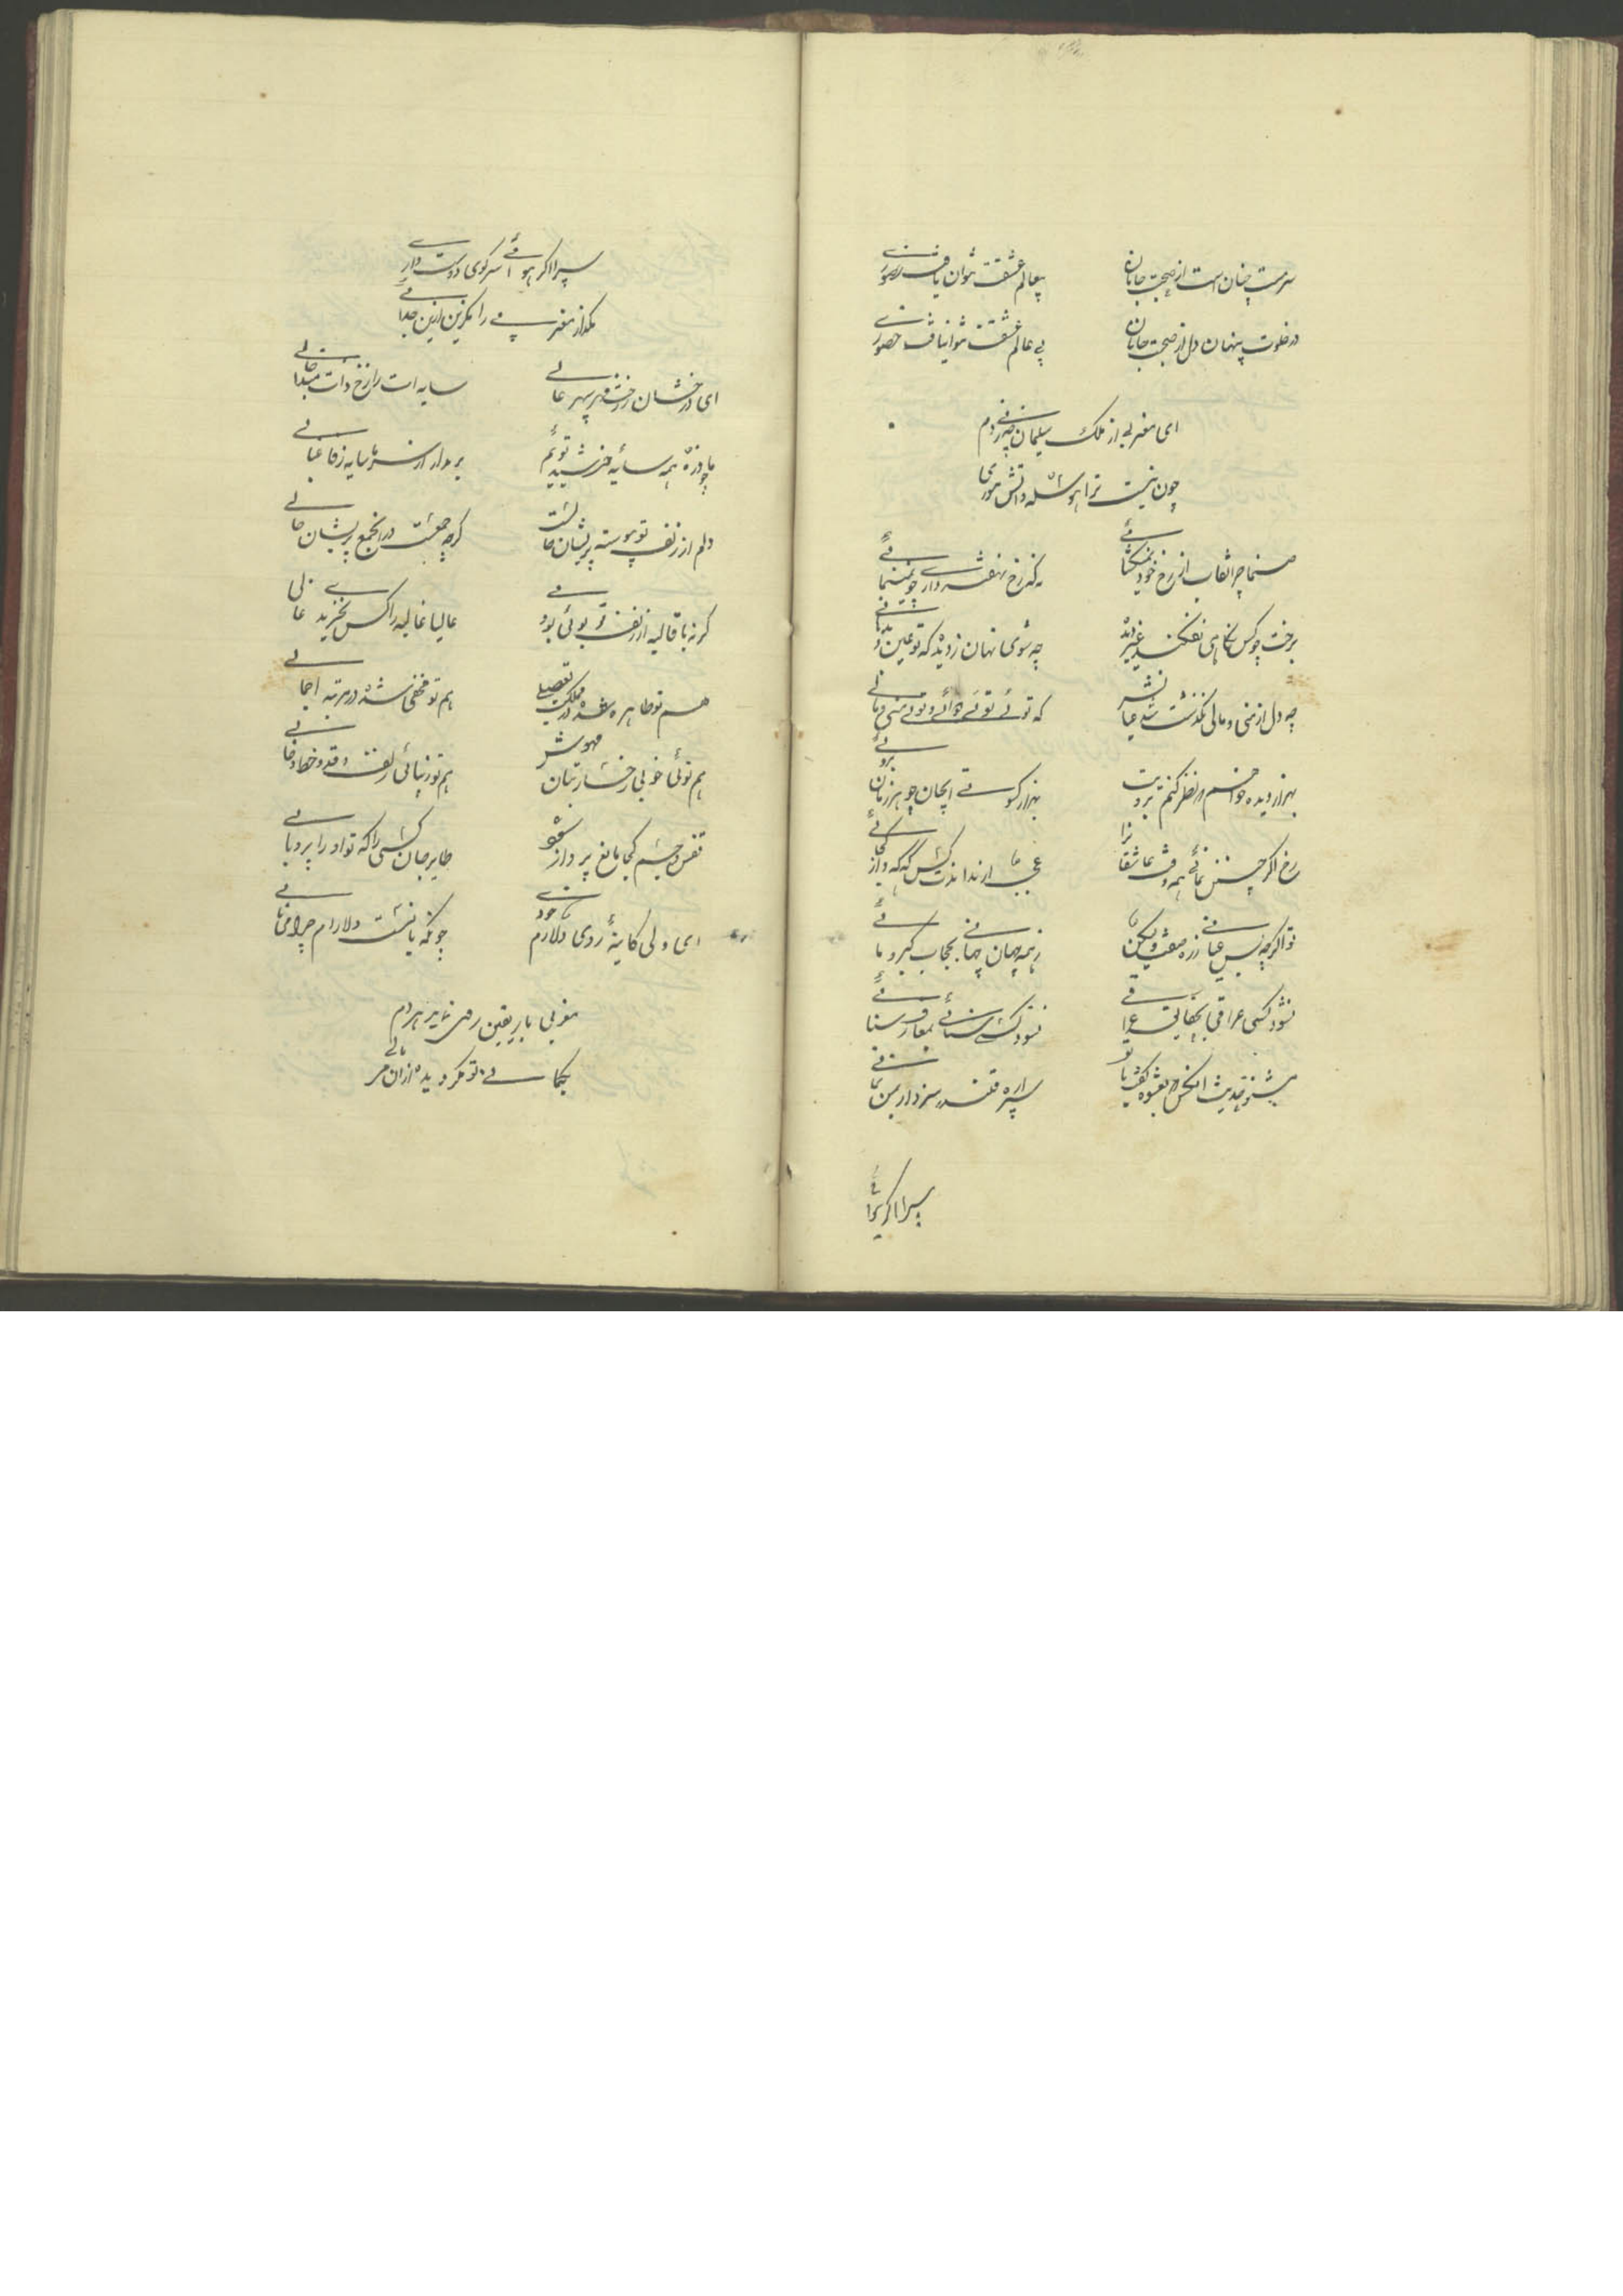 سرمست چنان است از صحبت جانان
بیعالم عشقت نتوان یافت
در خلوت پنهان دل از صحبت جانان
بی عالم عشقت نتوانیافت حضوری
ای مغربی از ملک سلیمان چه زنی دم
چون نیست ترا حوصله و دانش موری
صنما چرا نقاب از رخ خود نمیکشائی
ز که رخ نهفته داری چو نمینمائی
برخت چو کس نگاهی نفکند غیر دیده
چه شوی نهان ز دیده که تو عین
چو دل از منی و مائی نگذشت
که توئی توئی توئی و توئی منی و مائی
بهزار دیده خواهم نظر کنم برویت
بهزار کسوت ای جان چو هر زمان برآئی
رخ اگر چنین نمائی همه وقت عاشقانرا
عجبا ار نداندت کس که که و از کجائی
تو اگرچه بس عیانی ز ره صفت ولیکن
ز همه جهان نهانی بحجاب کبریائی
نشود کسی عراقی بحقایق عراقی
نشود کسی سنائی بمعارف سنائی
بشنو حدیث انکس که بعشوه گفت با تو
پسرا ره قلندر سزد ار بمن نمائی
پسرا اگر هوائی
پسرا اگر هوائی سر کوی دوست داری
بگذار مغربی را بگزین ازین جدائی
ای درخشان ز رخت مهر سپهر عالی
سایه ات را ز رخ ذات مبادا خالی
ما چو ذره همه سایهٔ خورشید توئیم
بر مدار از سر ما سایه ز فارغبالی
دلم از زلف تو پیوسته پریشان حالست
گرچه جمعست در انجمع پریشان حالی
گر نه با غالیه از زلف تو بوئی بودی
غالیا غالیه را کس نخریدی غالی
هم تو ظاهر شده در مملکت تفصیلی
هم تو مخفی شده در مرتبه اجمالی
هم توئی خوبی رخسار بتان مهوش
هم تو زیبائی زلف و قد و خط و خالی
قفس جسم کجا مانع پرواز شود
طایر جان کسی را که تو او را پر و بالی
ای ولی کاینهٔ روی دلارام خودی
چونکه یاد نست دلارام چرا می نالی
مغربی یار یقین رخ نماید هر دم
بکمالی تو مگر دیده ازان می مالی